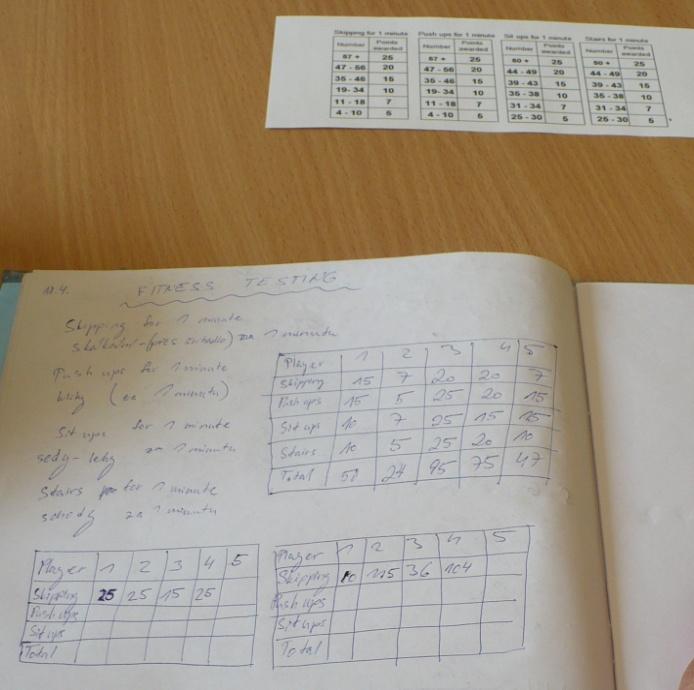 Skipping for 1 minute
Number Points awarded
57 + 25
47 - 56 20
35 - 46 15
19- 34 10
11 - 18 7
4 - 10 5
Push ups for 1 minute
Number Points awarded
57 + 25
47 - 56 20
35 - 46 15
19- 34 10
11 - 18 7
4 - 10 5
Sit ups for 1 minute
Number Points awarded
50 + 25
44 - 49 20
39 - 43 15
35 - 38 10
31 - 34 7
25 - 30 5
Stairs for 1 minute
Number Points awarded
50 + 25
44 - 49 20
39 - 43 15
35 - 38 10
31 - 34 7
25 - 30 5
FITNESS TESTING
Skipping for 1 minute
1 minutu
Push ups for 1 minute
kliky (za 1 minutu)
Sit ups for 1 minute
sedy - lehy za 1 minutu
Stairs for 1 minute
schody za 1 minutu
Player 1 2 3 4 5
Skipping 15 7 20 20 7
Push ups 15 5 25 20 15
Sit ups 10 7 25 15 15
Stairs 10 5 25 20 10
Total 50 24 95 75 47
Player 1 2 3 4 5
Skipping 25 25 15 25
Push ups
Sit ups
Total
Player 1 2 3 4 5
Skipping 115 36 104
Push ups
Sit ups
Total